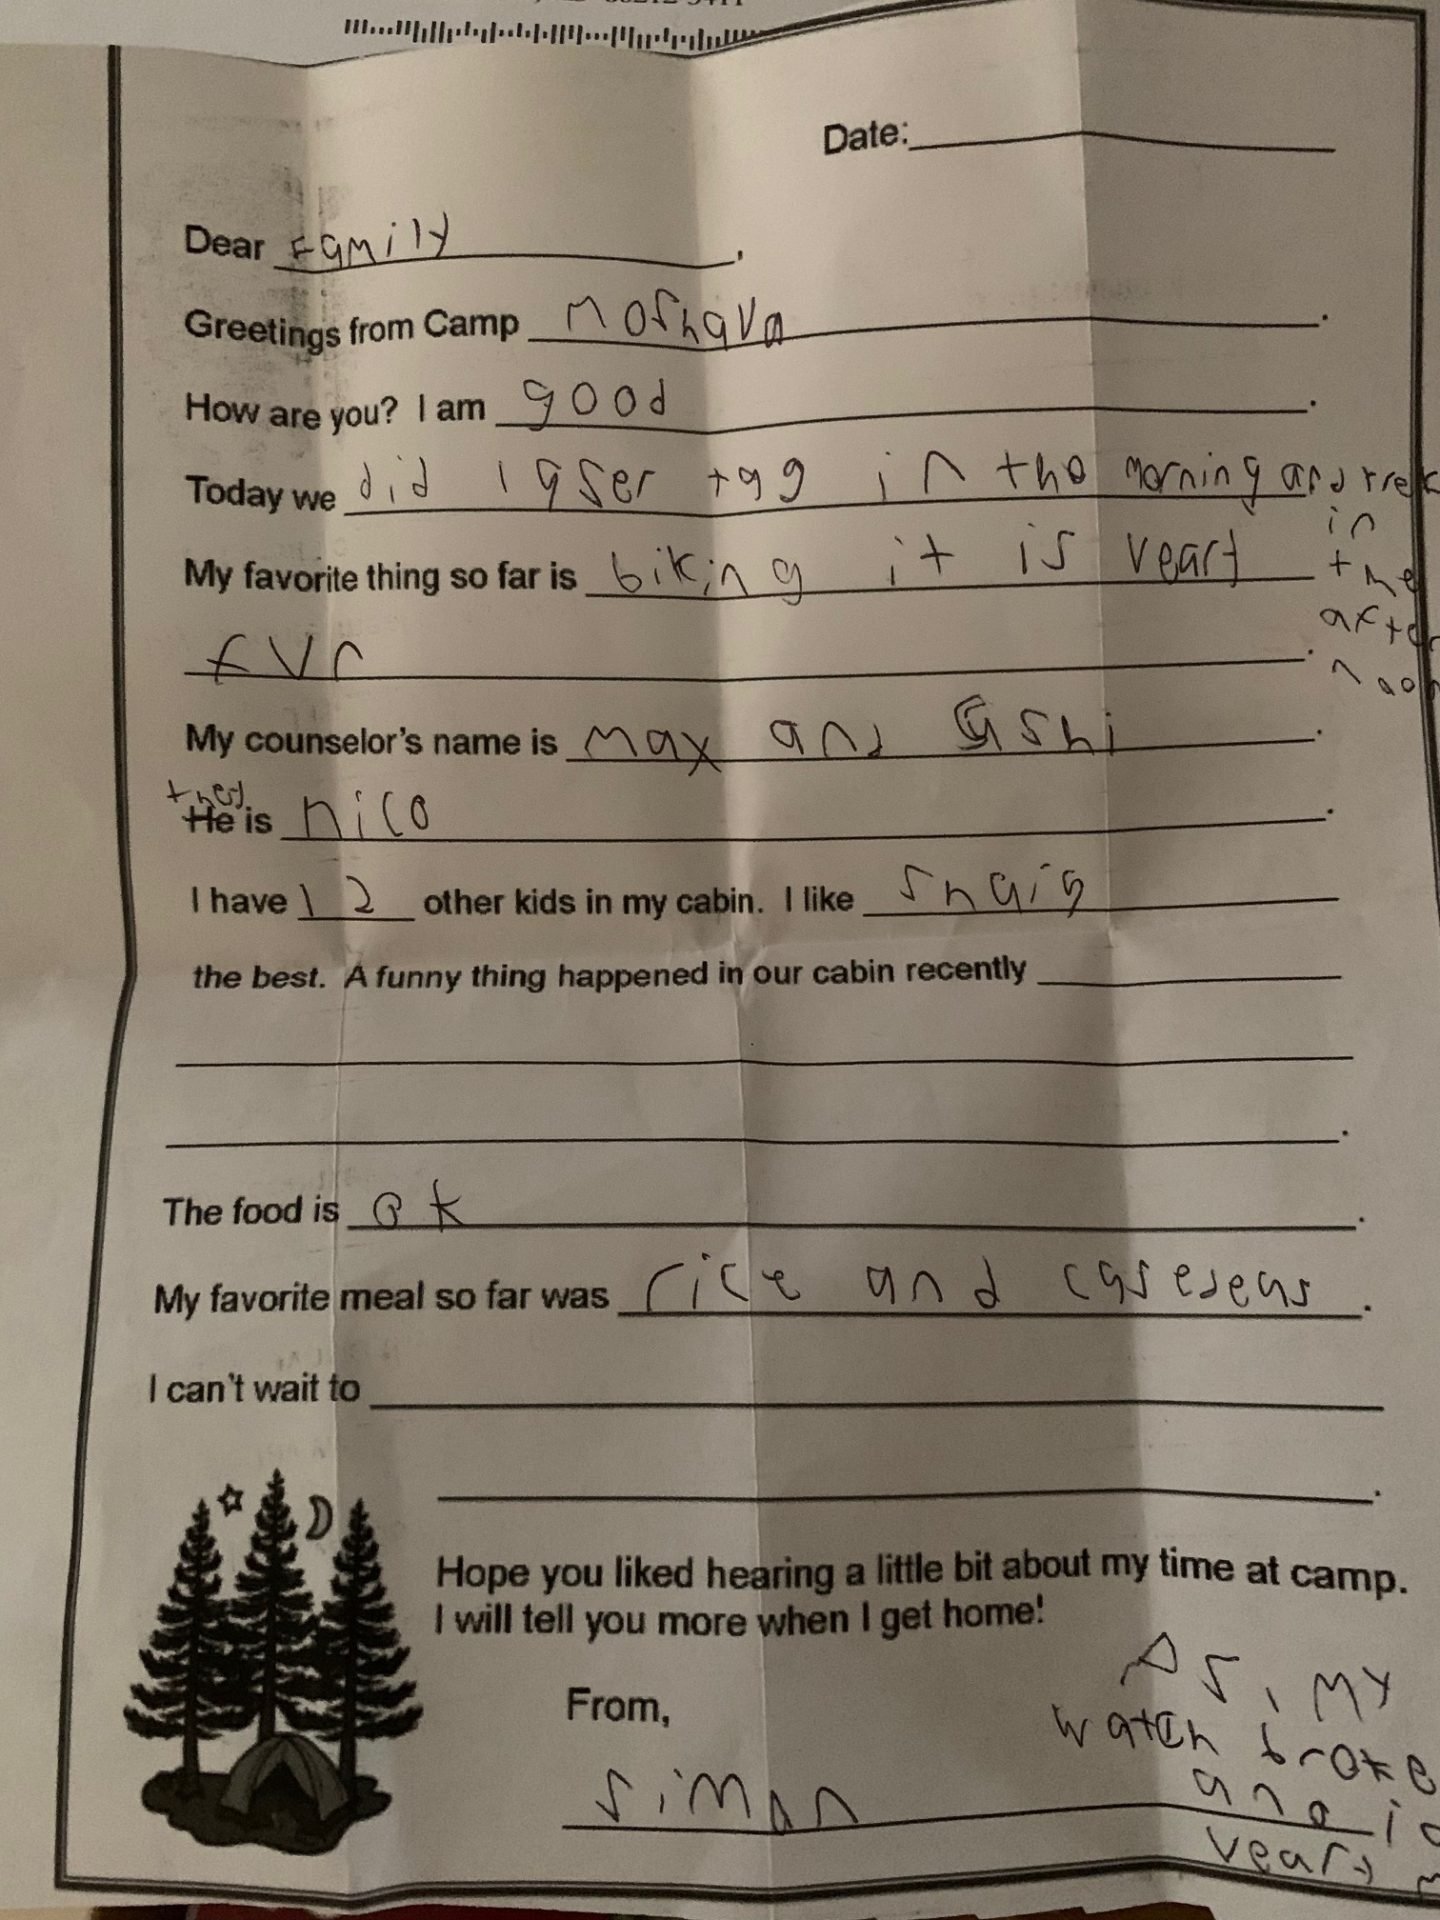 Date:
Dear Family,
Greetings from Camp Moshava.
How are you? I am good.
Today we did laser tag in the morning and trek
in
the
after
noon
My favorite thing so far is biking it is veary
fun.
My counselor's name is max and Gashi.
they
He is nice.
I have 12 other kids in my cabin. I like shaig
the best. A funny thing happened in our cabin recently
.
The food is ok.
My favorite meal so far was rice and casedeas.
I can't wait to
.
Hope you liked hearing a little bit about my time at camp.
I will tell you more when I get home!
From,
siman
Ps, My
watch broke
and i
veary